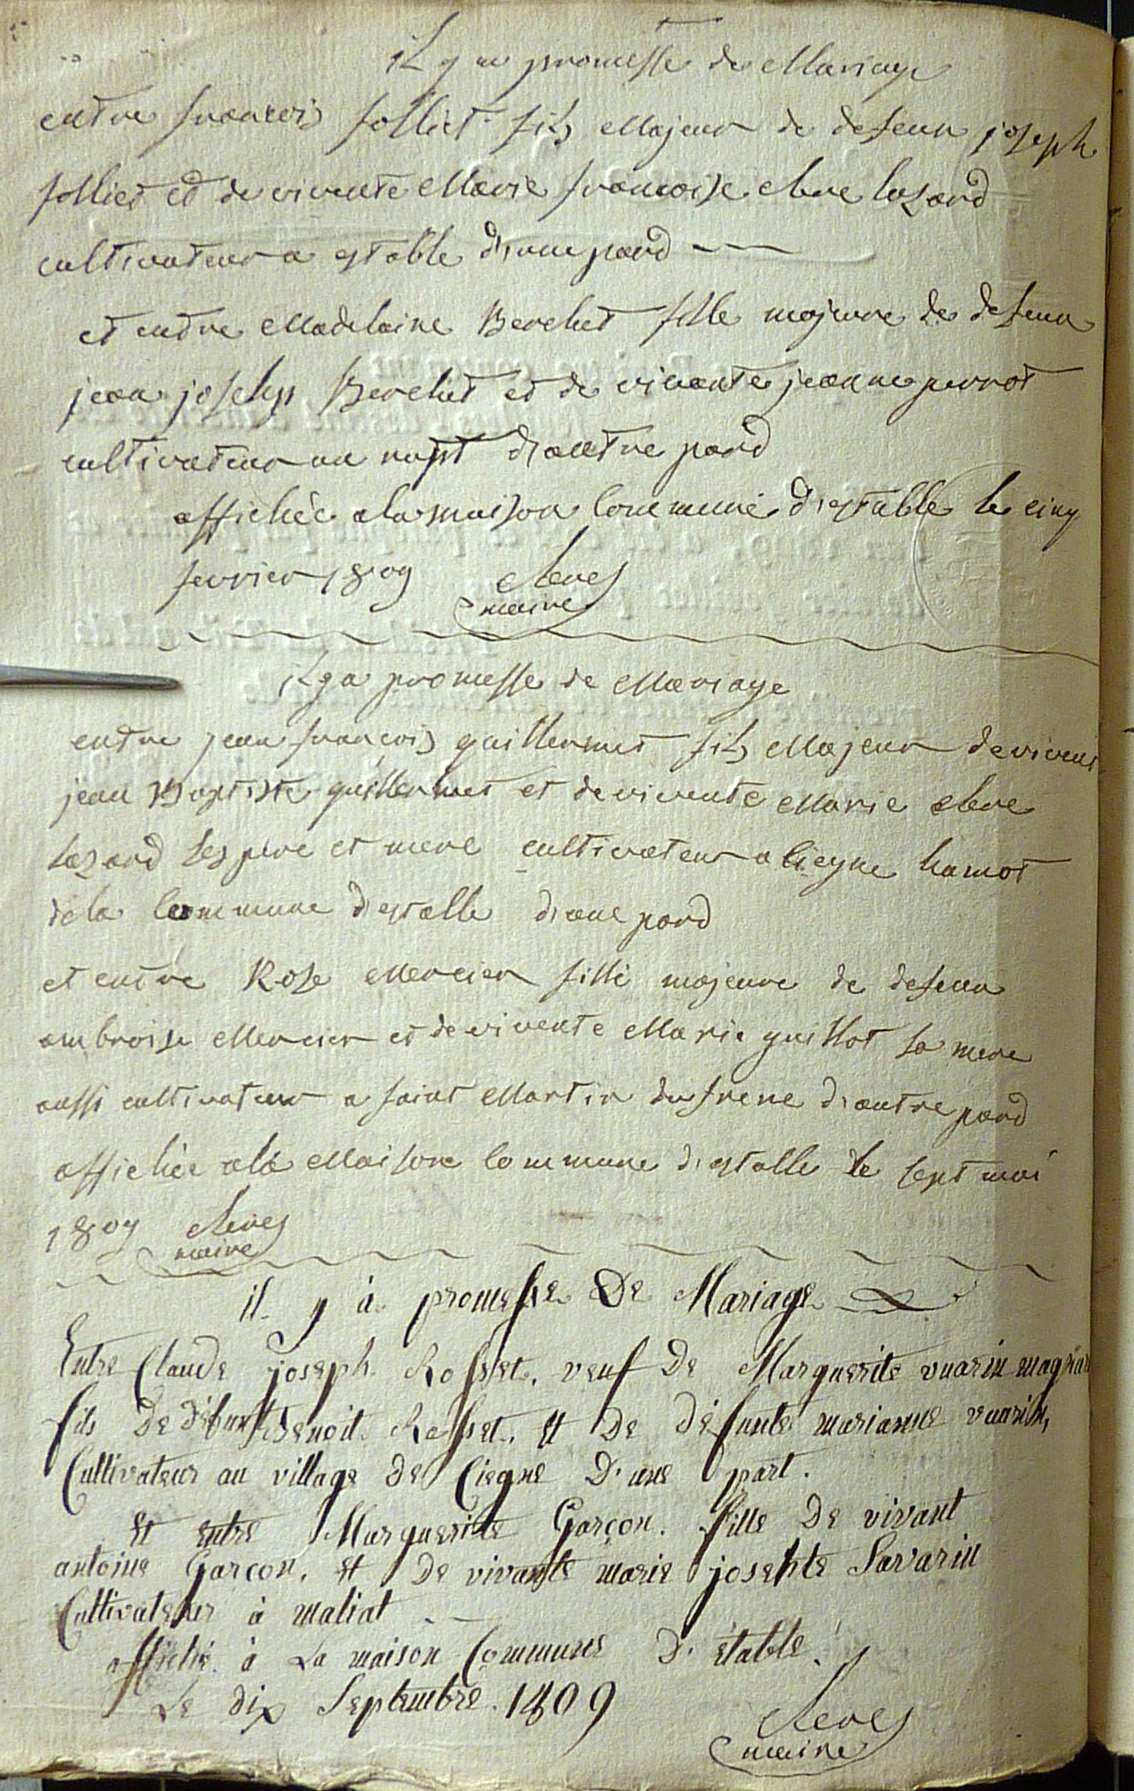 il y a promesse de Mariage
entre francois folliet fils Majeur de defeun joseph
folliet et de vivente Marie francoise cleve lazard
cultivateur a estable d'une pard
et entre Madelaine Berchet fille majeure de defeun
jean joseph Berchet et de vivante jeanne perrot
cultivateur au nupt d'autre pard
affichée a la maison Commune d'estable le cinq
fevrier 1809 Cleves
maire
il y a promesse de Mariage
entre jean francois guillermet fils Majeur de vivent
jean Baptiste guillermet et de vivente Marie cleve
lazard ses pere et mere cultivateur a Ciegne hamot
de la Commune d'estable d'une pard
et entre Rose Mercier fille majeure de defeun
ambroise Mercier et de vivente Marie guillot sa mere
aussi cultivateur a saint Martin du frene d'autre pard
affichée a la Maison Commune d'estable le sept mai
1809 Cleves
maire
il y à promesse De Mariage
Entre Claude joseph Rosset, veuf De Marguerite vuarin
fils De défunt Benoit Rosset, et De défunte marianne vuarin,
Cultivateur au village de Ciegne D'une part.
Et entre Marguerite Garçon. fille De vivant
antoine Garçon, et De vivante marie josephte Savarin
Cultivateur à maliat
affiché à La maison Commune D'étable.
Le dix Septembre 1809
Cleves
maire